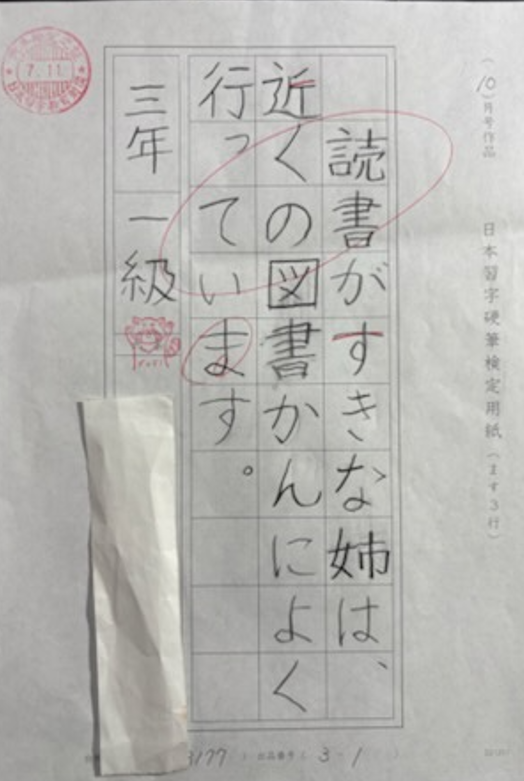 (10)月号作品
日本習字硬筆検定用紙(ます3行)
読書がすきな姉は、
近くの図書かんによく
行っています。
三年 一級
7.11
3177
3-1